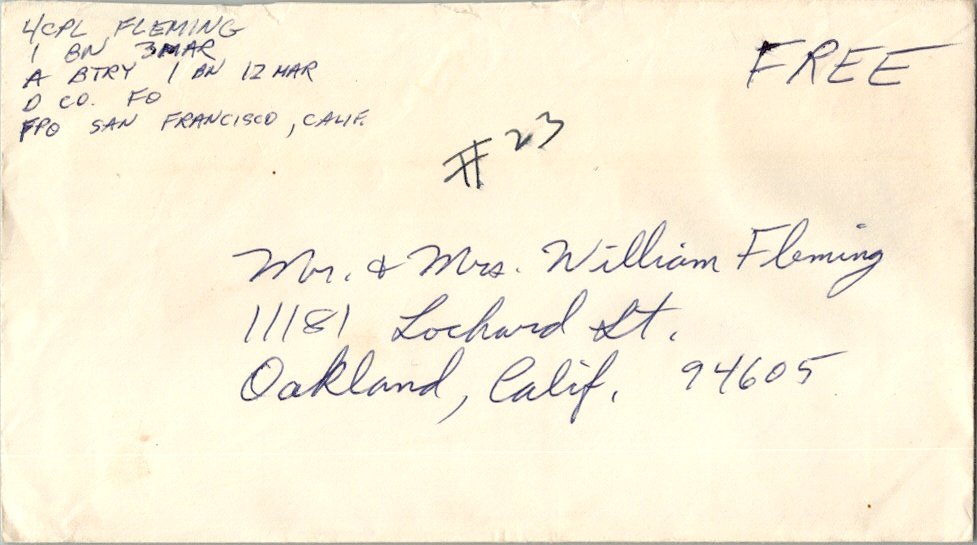 L/CPL FLEMING
1 BN 3MAR
A BTRY 1 BN 12 MAR
D CO. FO
FPO SAN FRANCISCO, CALIF.
FREE
# 23
Mr. & Mrs. William Fleming
11181 Lochard St.
Oakland, Calif. 94605